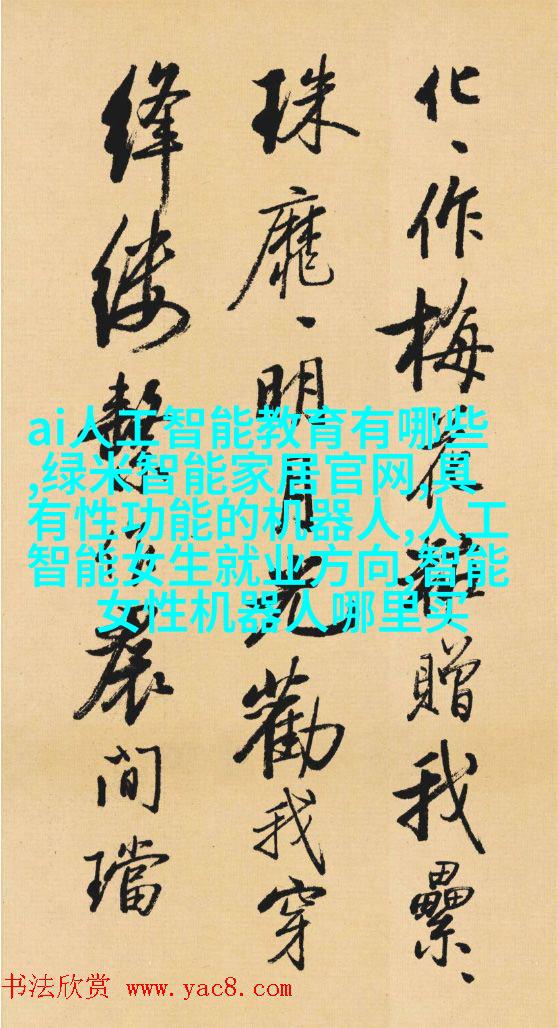 化、作梅花贈我纍、
珠靡、明月光勸我穿
絳縷繫間璫
ai人工智能教育有哪些
,绿米智能家居官网,具
有性功能的机器人,人工
智能女生就业方向,智能
女性机器人哪里买
书法欣赏 www.yac8.com